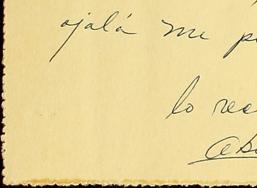 ojalá me p
lo rec